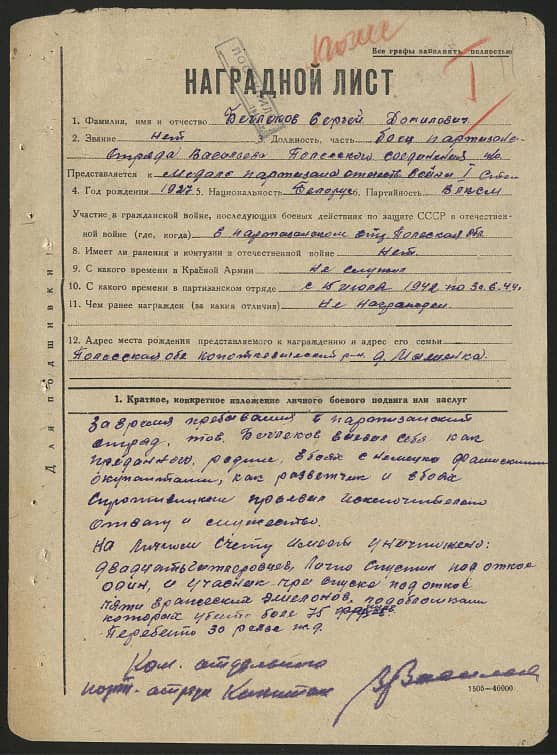 Все графы заполнять полностью
НАГРАДНОЙ ЛИСТ
1. Фамилия, имя и отчество Сергей
2. Звание нет 3. Должность, часть боец партизанс
отряда Василева Полесского соединения
Представляется к Медаль партизана отечеств войны I Степ
4. Год рождения 1927 5. Национальность Белорус 6. Партийность ВЛКСМ
Участие в гражданской войне, последующих боевых действиях по защите СССР и отечествен-
ной войне (где, когда) в партизанском отр Полеская обл
8. Имеет ли ранения и контузии в отечественной войне Нет
9. С какого времени в Красной Армии не служил
10. С какого времени в партизанском отряде с 1942 по 30.6.44г
11. Чем ранее награжден (за какие отличия) Не Награжден
12. Адрес места рождения представляемого к награждению и адрес его семьи
Полесская обл Копаткевический р-н д.
Для подшивки!
1. Краткое, конкретное изложение личного боевого подвига или заслуг
За время пребывания в партизанский
отряд, тов. вывел себя как
преданного родине, в боях с немецко фашискими
окупантами, как разветчик и в боях
с противником проевил исключительно
отвагу и мужество.
На личном счету имеет уничтожено:
Лично спустил под откос
один, и учасник при спуске под откос
пяти вражеский эшелонов, под обломками
которых убито боле 75
Перебето 30 рельс ж.д.
Ком. отдельного
парт. отряда Капитан
1505—40000